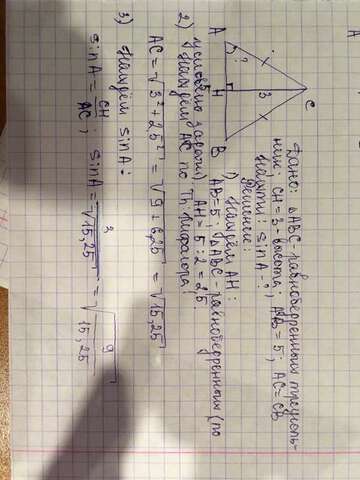 A
C
H
B
3
5
?
Дано: △ABC-равнобедренный треуголь-
ник; CH=3-высота; AB=5; AC=CB
Найти: sinA-?
Решение:
1) Найдём AH:
AB=5; △ABC-равнобедренный (по
условию задачи) AH=5:2=2,5
2) Найдём AC по Th. Пифагора:
AC=√3²+2,5² = √9+6,25 = √15,25
3) Найдём sinA:
sinA = CH/AC; sinA = 3/√15,25 = √9/15,25